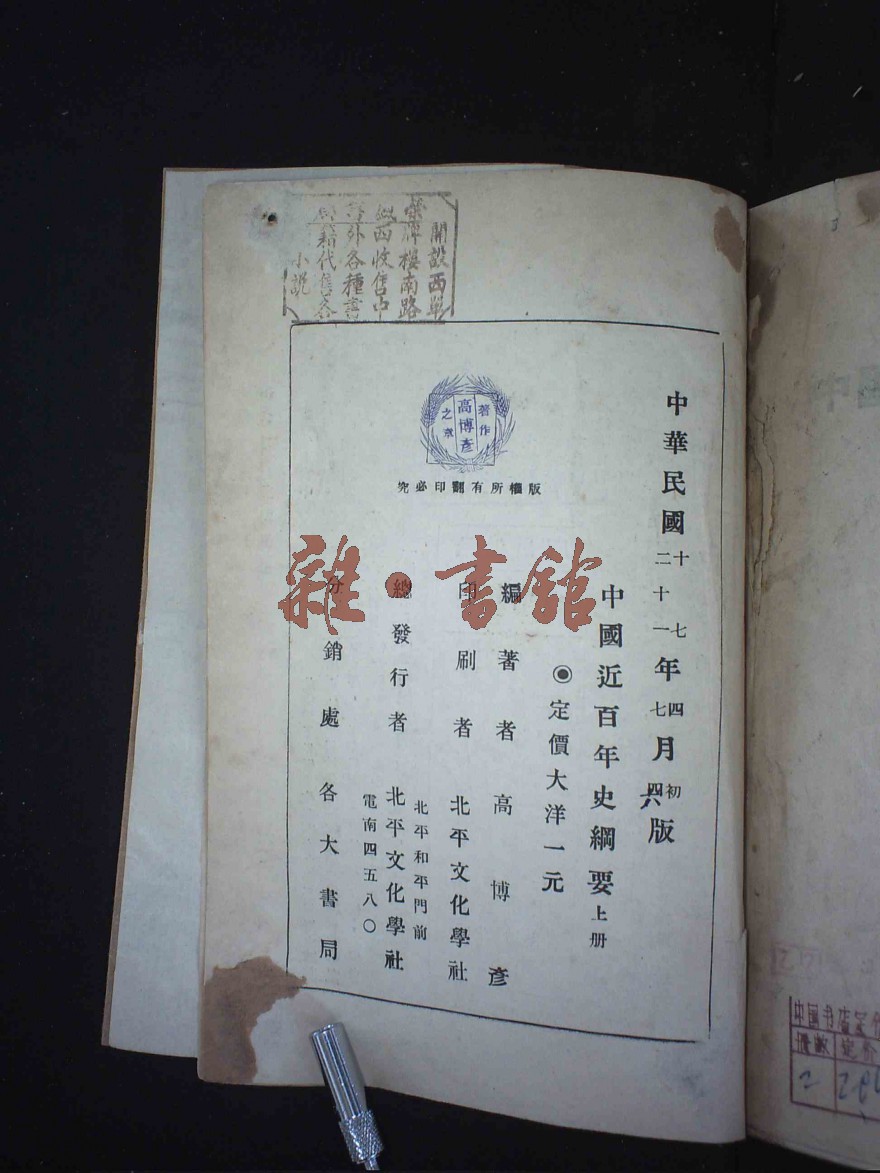 開設西單
牌樓南路
西收售中
外各種書
籍代售各
小說
著作
高博彥
之章
版權所有翻印必究
中華民國十七年四月初版
二十一年七月四版
中國近百年史綱要上册
◉定價大洋一元
編著者高博彥
印刷者北平文化學社
北平和平門前
總發行者北平文化學社
電南四五八〇
分銷處各大書局
雜·書館
中国书店定价
册数
定价
2